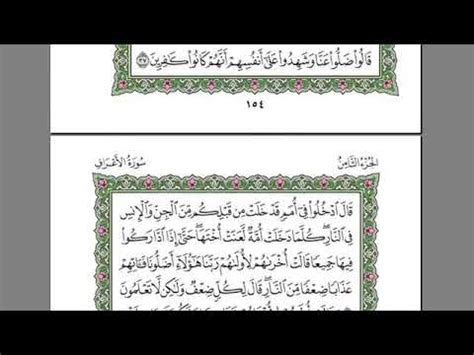 قَالُوا۟ ضَلُّوا۟ عَنَّا وَشَهِدُوا۟ عَلَىٰٓ أَنفُسِهِمْ أَنَّهُمْ كَانُوا۟ كَـٰفِرِينَ ٣٧
١٥٤
الجزء الثامن سورة الأعراف
قَالَ ٱدْخُلُوا۟ فِىٓ أُمَمٍ قَدْ خَلَتْ مِن قَبْلِكُم مِّنَ ٱلْجِنِّ وَٱلْإِنسِ
فِى ٱلنَّارِ كُلَّمَا دَخَلَتْ أُمَّةٌ لَّعَنَتْ أُخْتَهَا حَتَّىٰٓ إِذَا ٱدَّارَكُوا۟
فِيهَا جَمِيعًا قَالَتْ أُخْرَىٰهُمْ لِأُولَىٰهُمْ رَبَّنَا هَـٰٓؤُلَآءِ أَضَلُّونَا فَـَٔاتِهِمْ
عَذَابًا ضِعْفًا مِّنَ ٱلنَّارِ قَالَ لِكُلٍّ ضِعْفٌ وَلَـٰكِن لَّا تَعْلَمُونَ